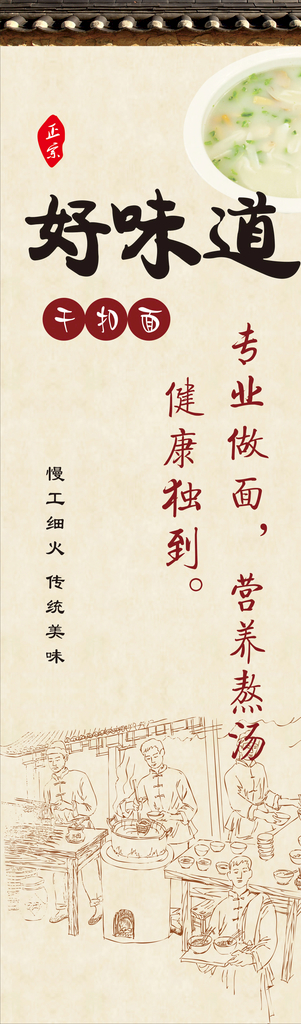 正宗
好味道
干扣面
专业做面，营养熬汤
健康独到。
慢工细火 传统美味